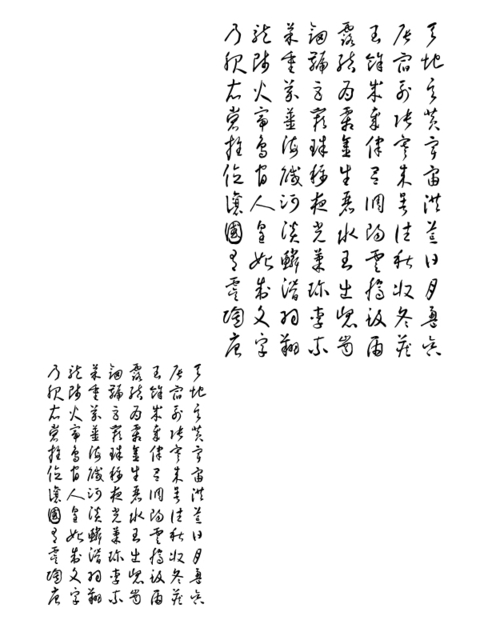 天地玄黃宇宙洪荒日月盈昃
辰宿列張寒來暑往秋收冬藏
閏餘成歲律呂調陽雲騰致雨
露結為霜金生麗水玉出崑岡
劍號巨闕珠稱夜光菓珍李柰
菜重芥薑海鹹河淡鱗潛羽翔
龍師火帝鳥官人皇始制文字
乃服衣裳推位讓國有虞陶唐
天地玄黃宇宙洪荒日月盈昃
辰宿列張寒來暑往秋收冬藏
閏餘成歲律呂調陽雲騰致雨
露結為霜金生麗水玉出崑岡
劍號巨闕珠稱夜光菓珍李柰
菜重芥薑海鹹河淡鱗潛羽翔
龍師火帝鳥官人皇始制文字
乃服衣裳推位讓國有虞陶唐